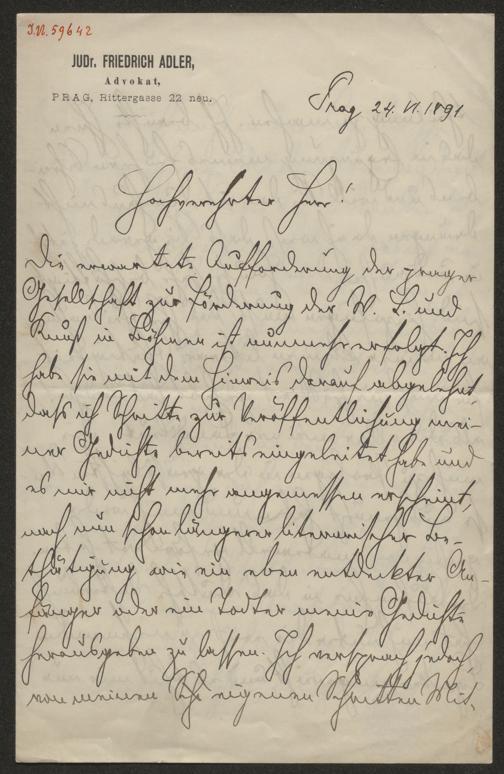 J.N. 59642
JUDr. FRIEDRICH ADLER,
Advokat,
PRAG, Rittergasse 22 neu.
Prag 24. VI. 1891
Hochverehrter Herr!
Die erwartete Aufforderung der prager
Gesellschaft zur Förderung der W. L. und
Kunst in Böhmen ist nunmehr erfolgt. Ich
habe sie mit dem Hinweis darauf abgelehnt
dass ich Schritte zur Veröffentlichung mei-
ner Gedichte bereits eingeleitet habe und
es mir nicht mehr angemessen erscheint,
nach nun schon längerer literarischer Be-
thätigung wie ein eben entdeckter An-
fänger oder ein Todter meine Gedichte
herausgeben zu lassen. Ich versprach jedoch,
von meinen eigenen Schritten Mit-